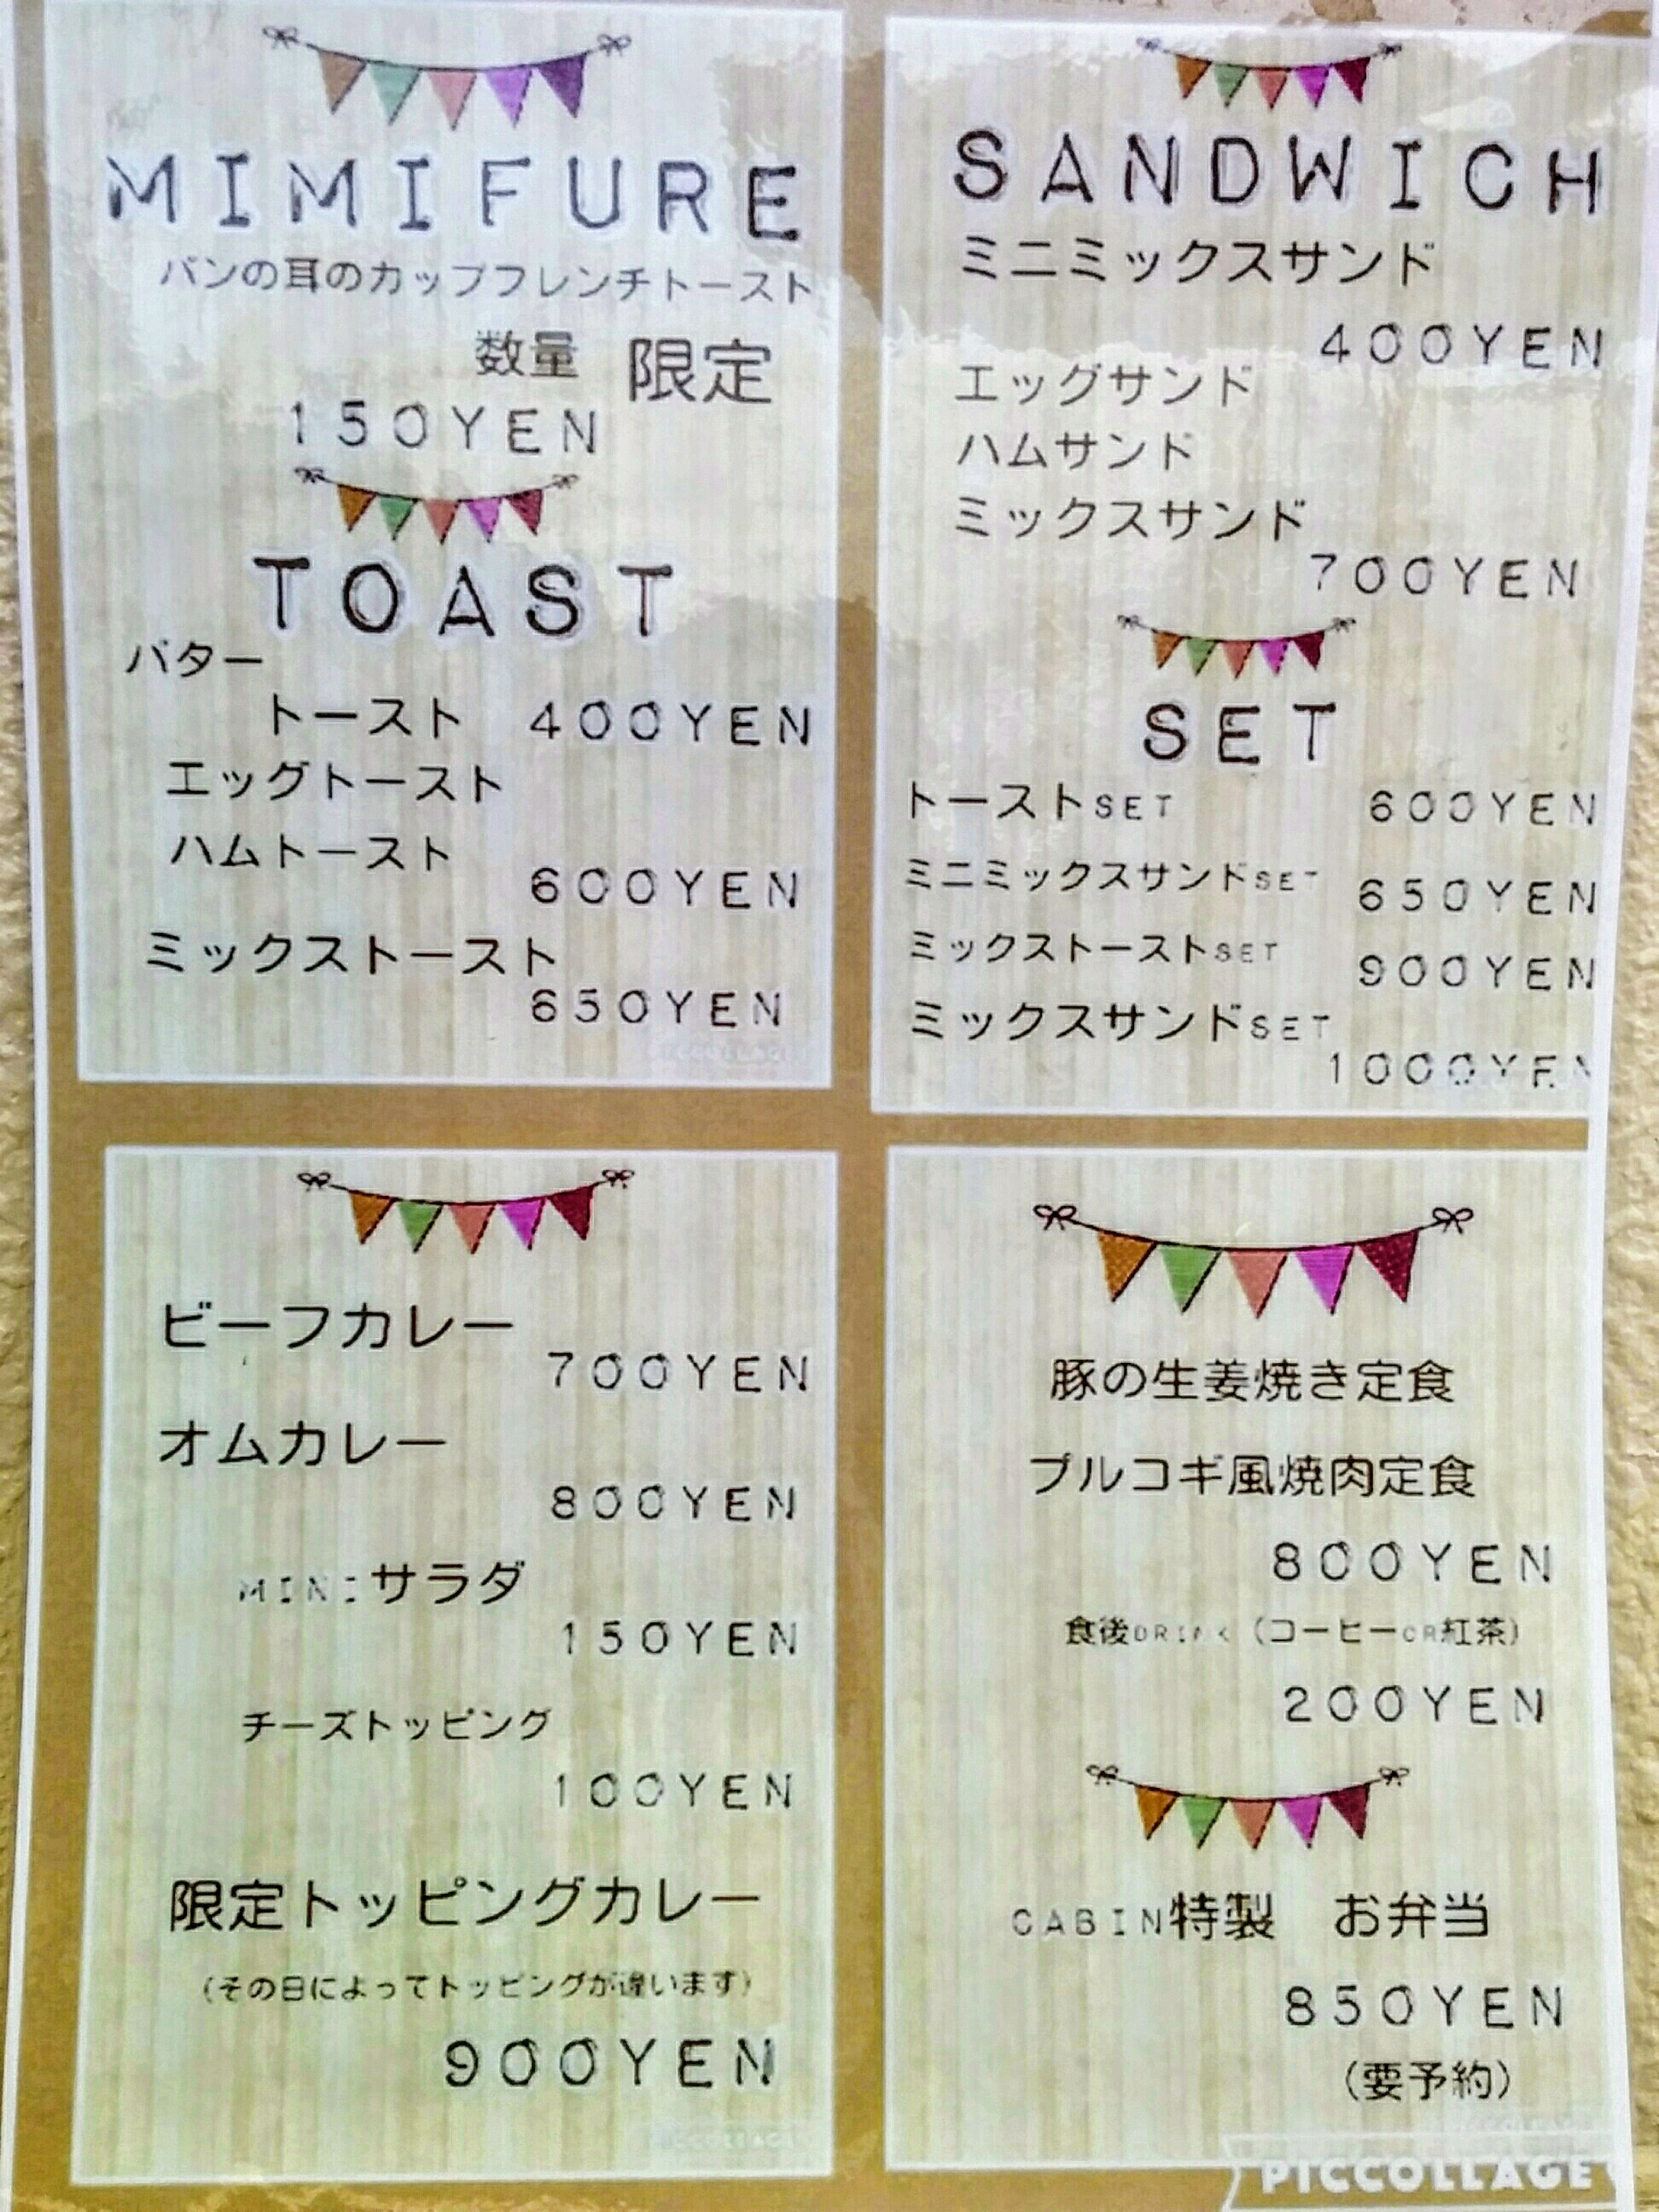 MIMIFURE
パンの耳のカップフレンチトースト
数量 限定
150YEN
TOAST
バター
トースト 400YEN
エッグトースト
ハムトースト
600YEN
ミックストースト
650YEN
PICCOLLAGE
SANDWICH
ミニミックスサンド
400YEN
エッグサンド
ハムサンド
ミックスサンド
700YEN
SET
トーストSET 600YEN
ミニミックスサンドSET 650YEN
ミックストーストSET 900YEN
ミックスサンドSET
1000YEN
ビーフカレー
700YEN
オムカレー
800YEN
MINIサラダ
150YEN
チーズトッピング
100YEN
限定トッピングカレー
(その日によってトッピングが違います)
900YEN
PICCOLLAGE
豚の生姜焼き定食
プルコギ風焼肉定食
800YEN
食後DRINK (コーヒーOR紅茶)
200YEN
CABIN特製 お弁当
850YEN
(要予約)
PICCOLLAGE